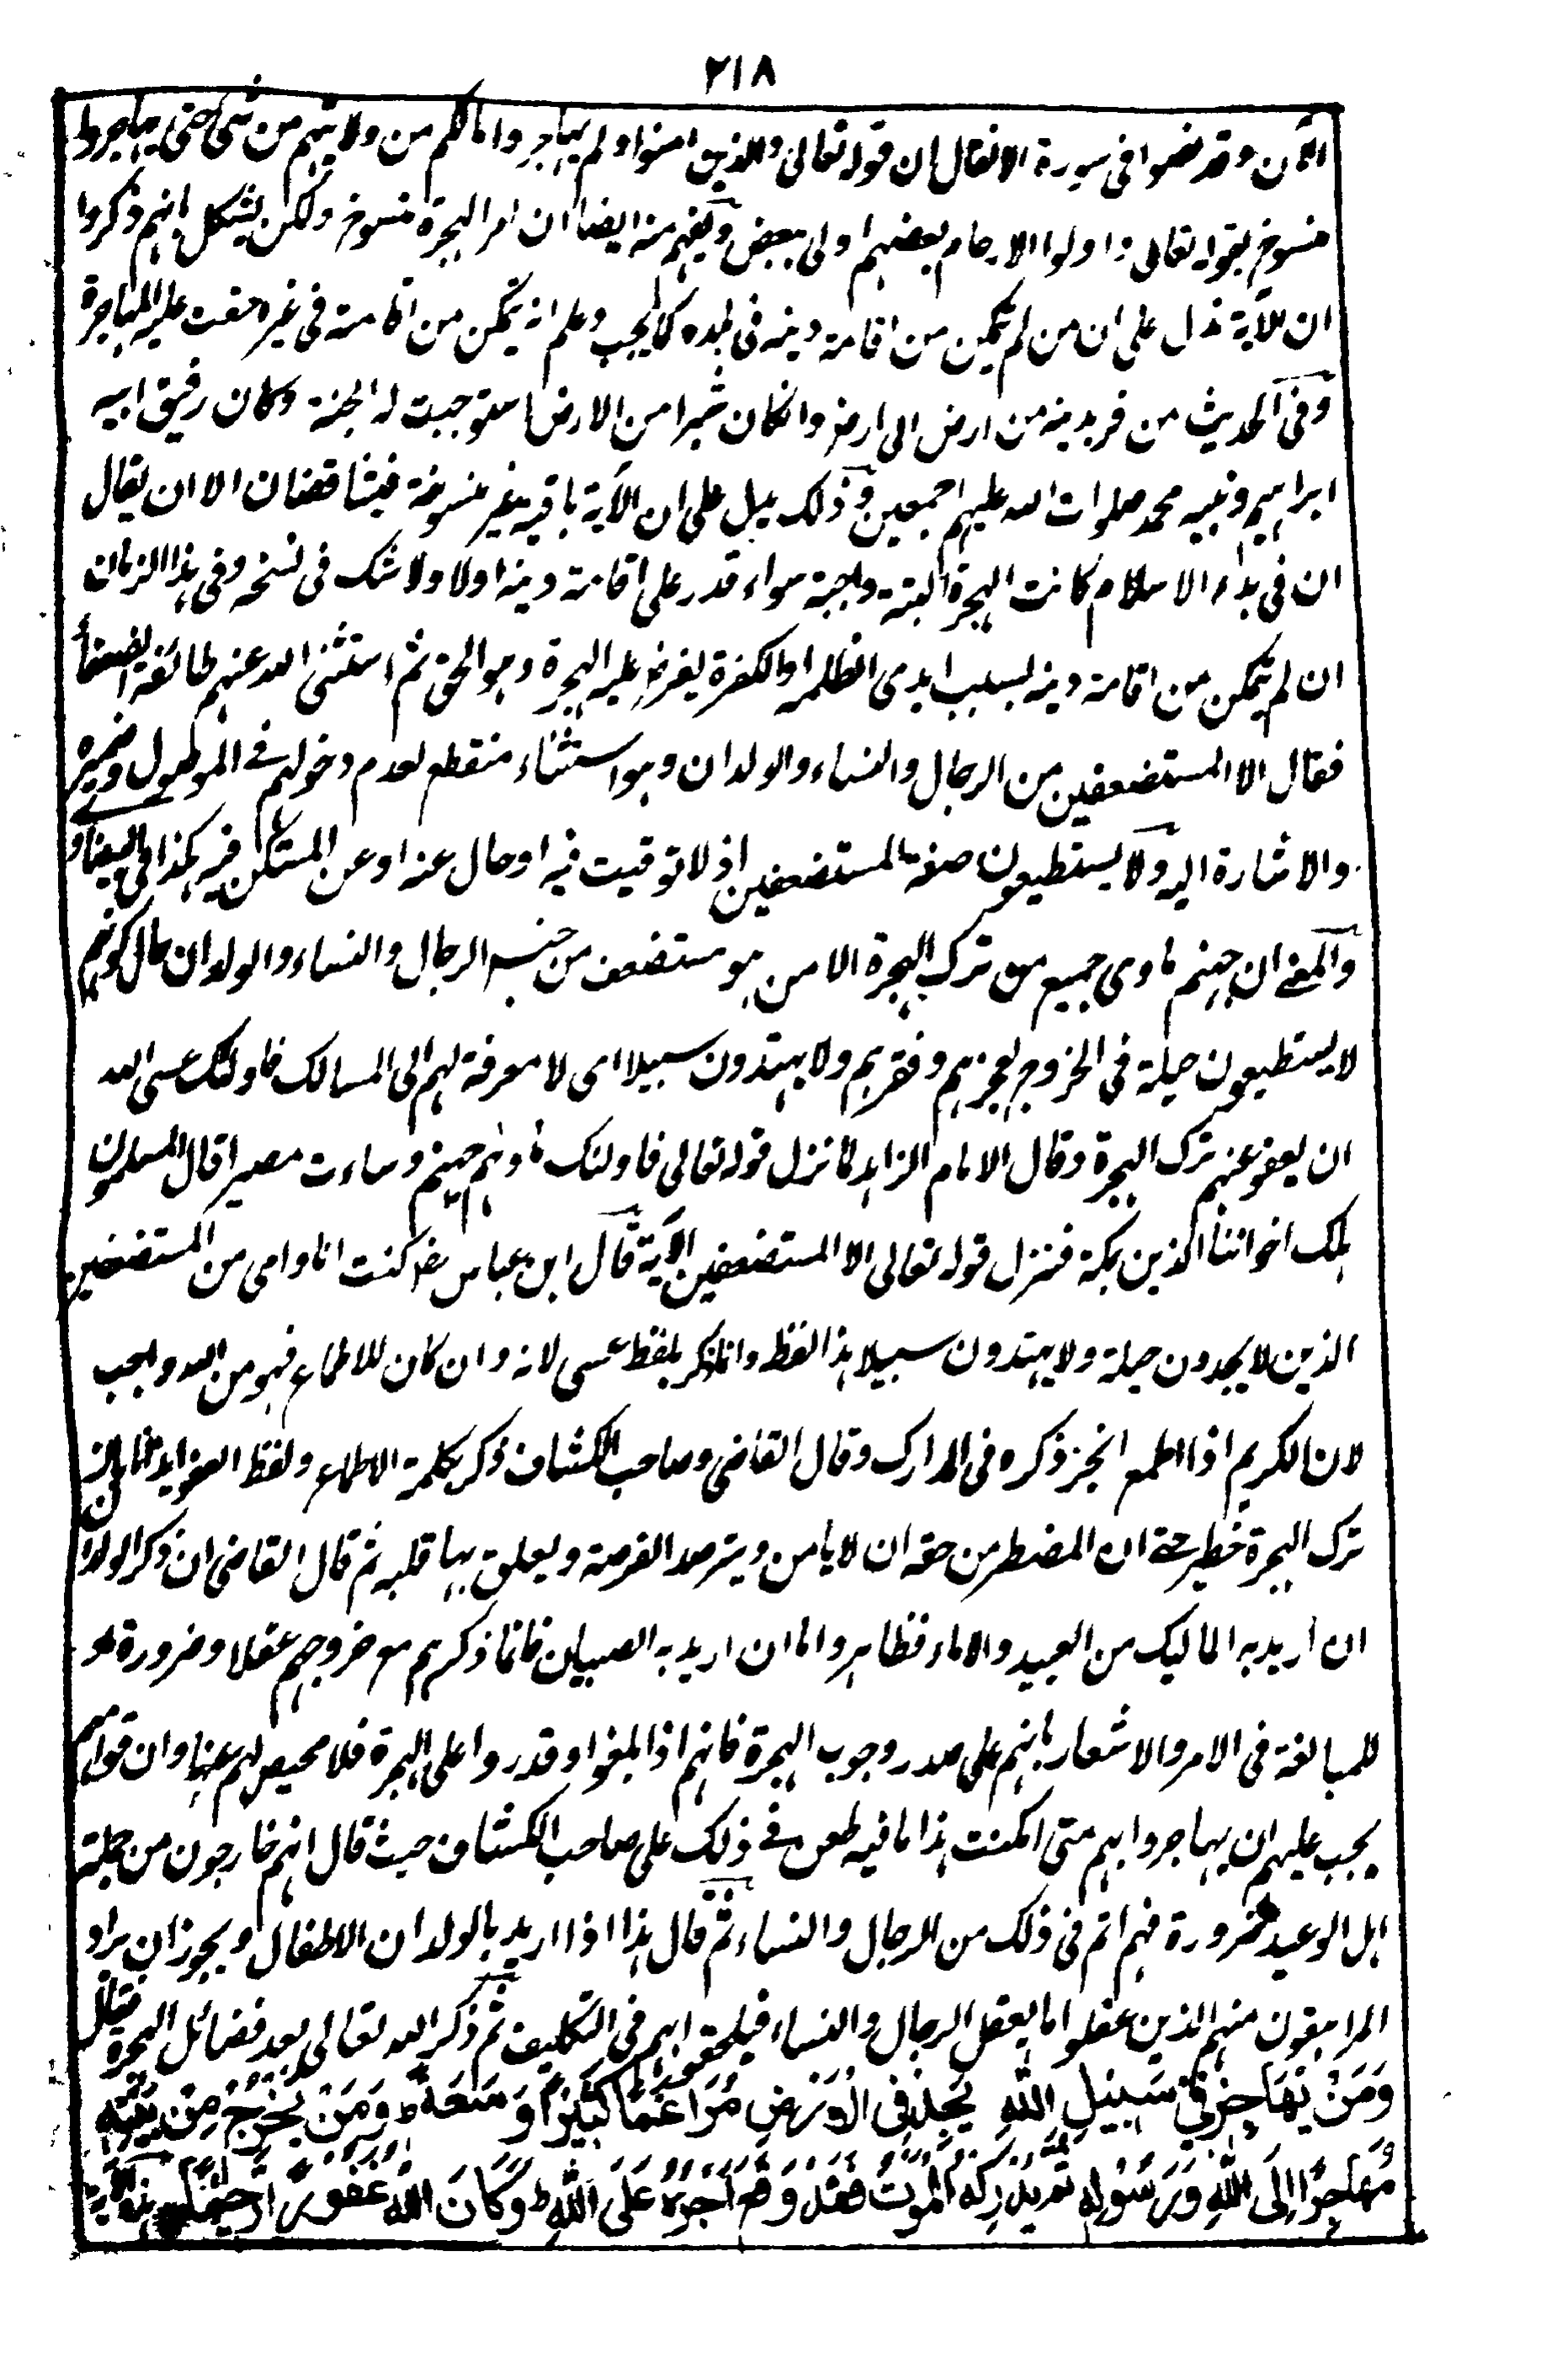 ٢١٨
الآن وقد نصوا فى سورة الانفال ان قوله تعالى والذين امنوا ولم يهاجروا مالكم من ولايتهم من شئ حتى يهاجروا
منسوخ بقوله تعالى واولوا الارحام بعضهم اولى ببعض ويفهم منه ايضا ان امر الهجرة منسوخ ولكن يشكل بانهم ذكروا
ان الآية تدل على ان من لم يتمكن من اقامة دينه فى بلده كما يجب وعلم انه يتمكن من اقامته فى غيره حقت عليه المهاجرة
وفى الحديث من فر بدينه من ارض الى ارض وانكان شبرا من الارض استوجبت له الجنة وكان رفيق ابيه
ابراهيم ونبيه محمد صلوات الله عليهم اجمعين وذلك يدل على ان الآية باقية غير منسوخة فيتناقضان الا ان يقال
ان فى بدء الاسلام كانت الهجرة البتة واجبة سواء قدر على اقامة دينه اولا ولاشك فى نسخه وفى هذا الزمان
ان لم يتمكن من اقامة دينه بسبب ايدى الظلمة او الكفرة يفرض عليه الهجرة وهو الحق ثم استثنى الله عنهم طائفة الضعفاء
فقال الا المستضعفين من الرجال والنساء والولدان وهو استثناء منقطع لعدم دخولهم فى الموصول وضميره
والاشارة اليه ولا يستطيعون صفة المستضعفين اذ لا توقيت فيه او حال عنه او عن المستكن فيه هكذا فى البيضاوى
والمعنى ان جهنم ماوى جميع من ترك الهجرة الا من هو مستضعف من جنس الرجال والنساء والولدان حال كونهم
لا يستطيعون حيلة فى الخروج لعجزهم وفقرهم ولا يهتدون سبيلا اى لا معرفة لهم الى المسالك فاولئك عسى الله
ان يعفو عنهم ترك الهجرة وقال الامام الزاهد لما نزل قوله تعالى فاولئك ماوٰهم جهنم وساءت مصيرا قال المسلمون
هلك اخواننا الذين بمكة فنزل قوله تعالى الا المستضعفين الآية قال ابن عباس رض كنت انا وامى من المستضعفين
الذين لا يجدون حيلة ولا يهتدون سبيلا هذا لفظه وانما ذكر بلفظ عسى لانه وان كان للاطماع فهو من الله واجب
لان الكريم اذا اطمع انجز ذكره فى المدارك وقال القاضى وصاحب الكشاف ذكر بكلمة الاطماع ولفظ العفو ايذانا بان
ترك الهجرة خطير حتى ان المضطر من حقه ان لا يامن ويترصد الفرصة ويعلق بها قلبه ثم قال القاضى ان ذكر الولدان
ان اريد به المماليك من العبيد والاماء فظاهر واما ان اريد به الصبيان فانما ذكرهم مع خروجهم عقلا وضرورة
للمبالغة فى الامر والاشعار بانهم على صدد وجوب الهجرة فانهم اذا بلغوا وقدروا على الهجرة فلا محيص لهم عنها وان قوامهم
يجب عليهم ان يهاجروا بهم متى امكنت هذا ما فيه طعن فى ذلك على صاحب الكشاف حيث قال انهم خارجون من جملة
اهل الوعيد ضرورة فهم اتم فى ذلك من الرجال والنساء ثم قال هذا اذا اريد بالولدان الاطفال ويجوز ان يراد
المراهقون منهم الذين عقلوا ما يعقل الرجال والنساء فيلحقوا بهم فى التكليف ثم ذكر الله تعالى بعد فضائل الهجرة فقال
وَمَنْ يُهَاجِرْ فِىْ سَبِيْلِ اللّٰهِ يَجِدْ فِى الْاَرْضِ مُرَاغَمًا كَثِيْرًا وَسَعَةً ط وَمَنْ يَخْرُجْ مِنْ بَيْتِهٖ
مُهَاجِرًا اِلَى اللّٰهِ وَرَسُوْلِهٖ ثُمَّ يُدْرِكْهُ الْمَوْتُ فَقَدْ وَقَعَ اَجْرُهٗ عَلَى اللّٰهِ ط وَكَانَ اللّٰهُ غَفُوْرًا رَّحِيْمًا هذه الآية